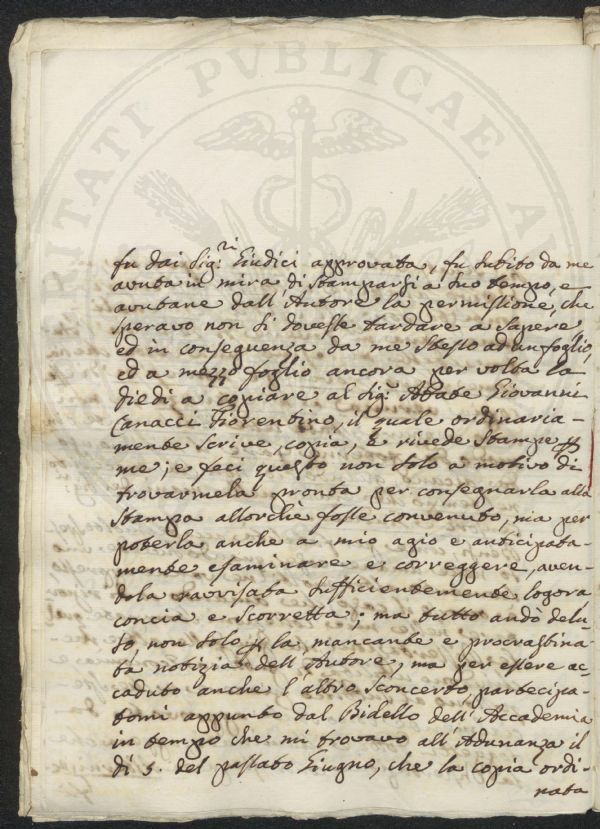 VERITATI PVBLICAE
fu dai Sig.ri Giudici approvata, fu subito da me
avuta in mira di stamparsi a suo tempo, e
avutane dall'Autore la permissione, che
speravo non si dovesse tardare a sapere
ed in conseguenza da me stesso ad un foglio,
ed a mezzo foglio ancora per volta la
diedi a copiare al Sig.r Abate Giovanni
Canacci Fiorentino, il quale ordinaria-
mente scrive, copia, e rivede stampe p
me; e feci questo non solo a motivo di
trovarmela pronta per consegnarla alla
stampa allorchè fosse convenuto, ma per
poterla anche a mio agio e anticipata-
mente esaminare e correggere, aven-
dola ravvisata sufficientemente logora
concia e scorretta; ma tutto andò delu-
so, non solo p la mancante e procrastina-
ta notizia dell'Autore, ma per essere ac-
caduto anche l'altro sconcerto, partecipa-
tomi appunto dal Bidello dell'Accademia
in tempo che mi trovavo all'Adunanza il
dì 5. del passato Giugno, che la copia ordi-
nata